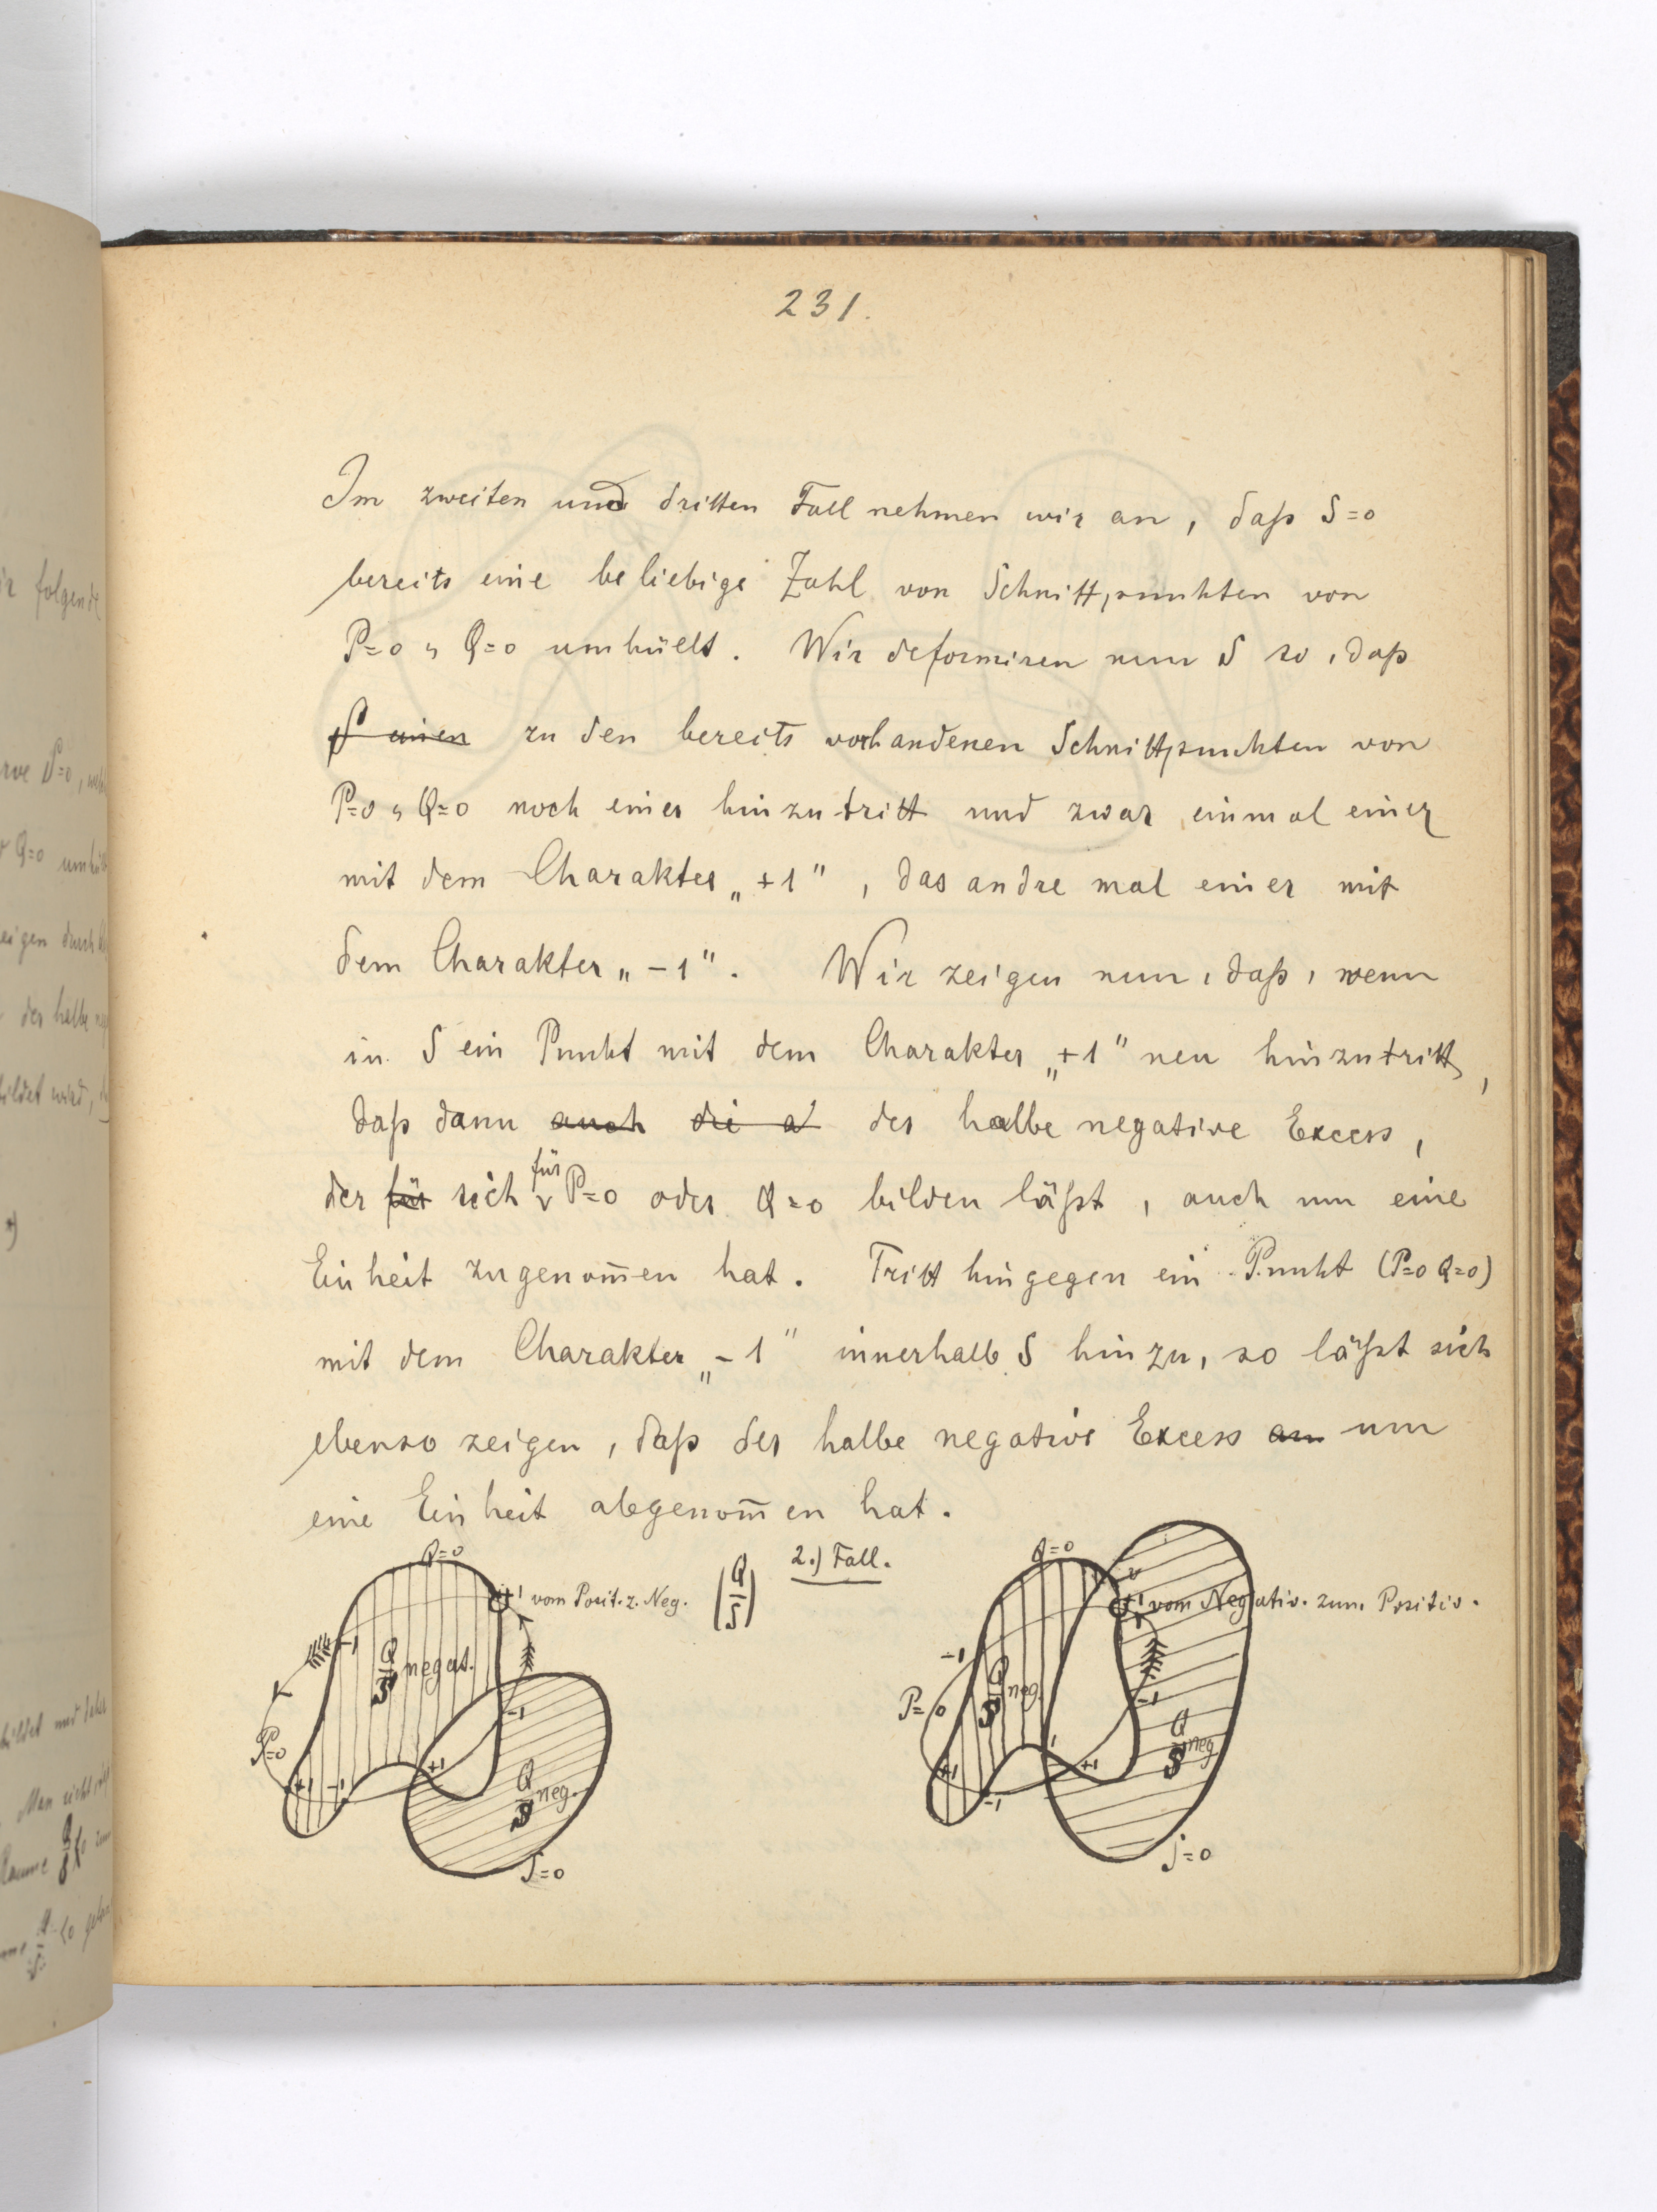 231.
Im zweiten und dritten Fall nehmen wir an, daß S=0
bereits eine beliebige Zahl von Schnittpunkten von
P=0 u Q=0 umhüllt. Wir deformiren nun S so, daß
S einen zu den bereits vorhandenen Schnittpunkten von
P=0 u Q=0 noch einer hinzutritt und zwar einmal einer
mit dem Charakter „+1", das andre mal einer mit
dem Charakter „-1". Wir zeigen nun, daß, wenn
in S ein Punkt mit dem Charakter „+1" neu hinzutritt,
daß dann auch die a der halbe negative Excess,
der für sich für P=0 oder Q=0 bilden läßt, auch um eine
Einheit zugenom̅en hat. Tritt hingegen ein Punkt (P=0 Q=0)
mit dem Charakter „-1" innerhalb S hinzu, so läßt sich
ebenso zeigen, daß der halbe negative Excess an um
eine Einheit abgenom̅en hat.
2.) Fall.
Q=0
+1 vom Posit. z. Neg. (Q/S)
-1
Q/S negat.
P=0
-1
+1 -1
+1
Q/S neg.
S=0
Q=0
+1 vom Negativ. zum Positiv.
-1
Q/S neg.
P=0
-1
Q/S neg
+1
+1
-1
S=0
ir folgende
rve S=0,
Q=0
eigen durch
der halbe
bildet wird,
bildet und
Man sieht
Raume Q/S